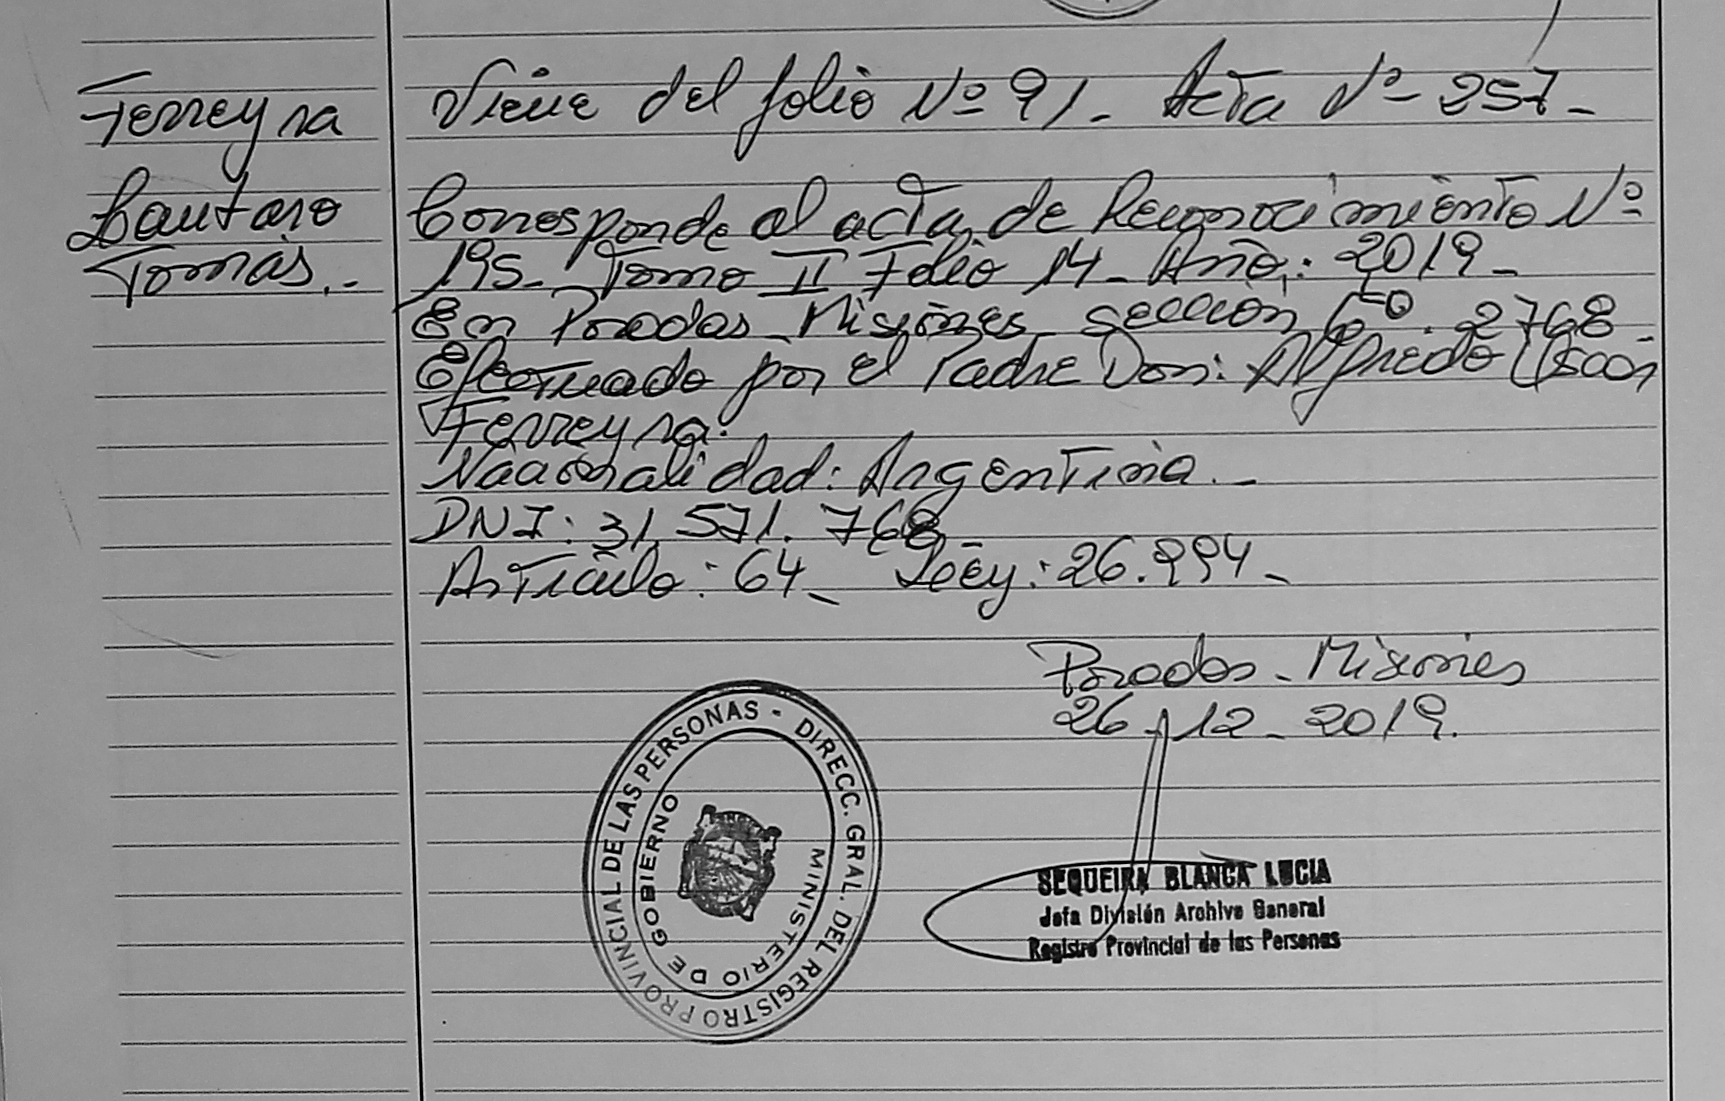 Ferreyra
Lautaro
Tomás.-
Viene del folio Nº 91- Acta Nº 257-
Corresponde al acta de Reconocimiento Nº
195- Tomo II Folio 14- Año: 2019-
En Posadas Misiones sección 2768-
Efectuado por el Padre Don: Alfredo
Ferreyra.
Nacionalidad: Argentina.-
DNI: 31.571.768-
Artículo: 64- Ley: 26.994-
Posadas- Misiones
26-12-2019.
DIRECC. GRAL. DEL REGISTRO PROVINCIAL DE LAS PERSONAS -
MINISTERIO DE GOBIERNO
SEQUEIRA BLANCA LUCIA
Jefa División Archivo General
Registro Provincial de las Personas